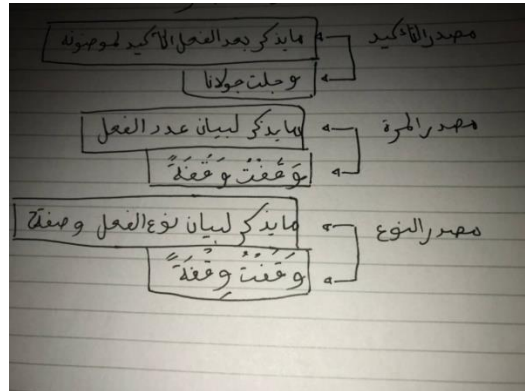 مصدر التأكيد مايذكر بعد الفعل لتأكيد لمضمونه
وجلت جولانا
مصدر المرة مايذكر لبيان عدد الفعل
وَقَفْتُ وَقْفَةً
مصدر النوع مايذكر لبيان نوع الفعل وصفته
وَقَفْتُ وِقْفَةً